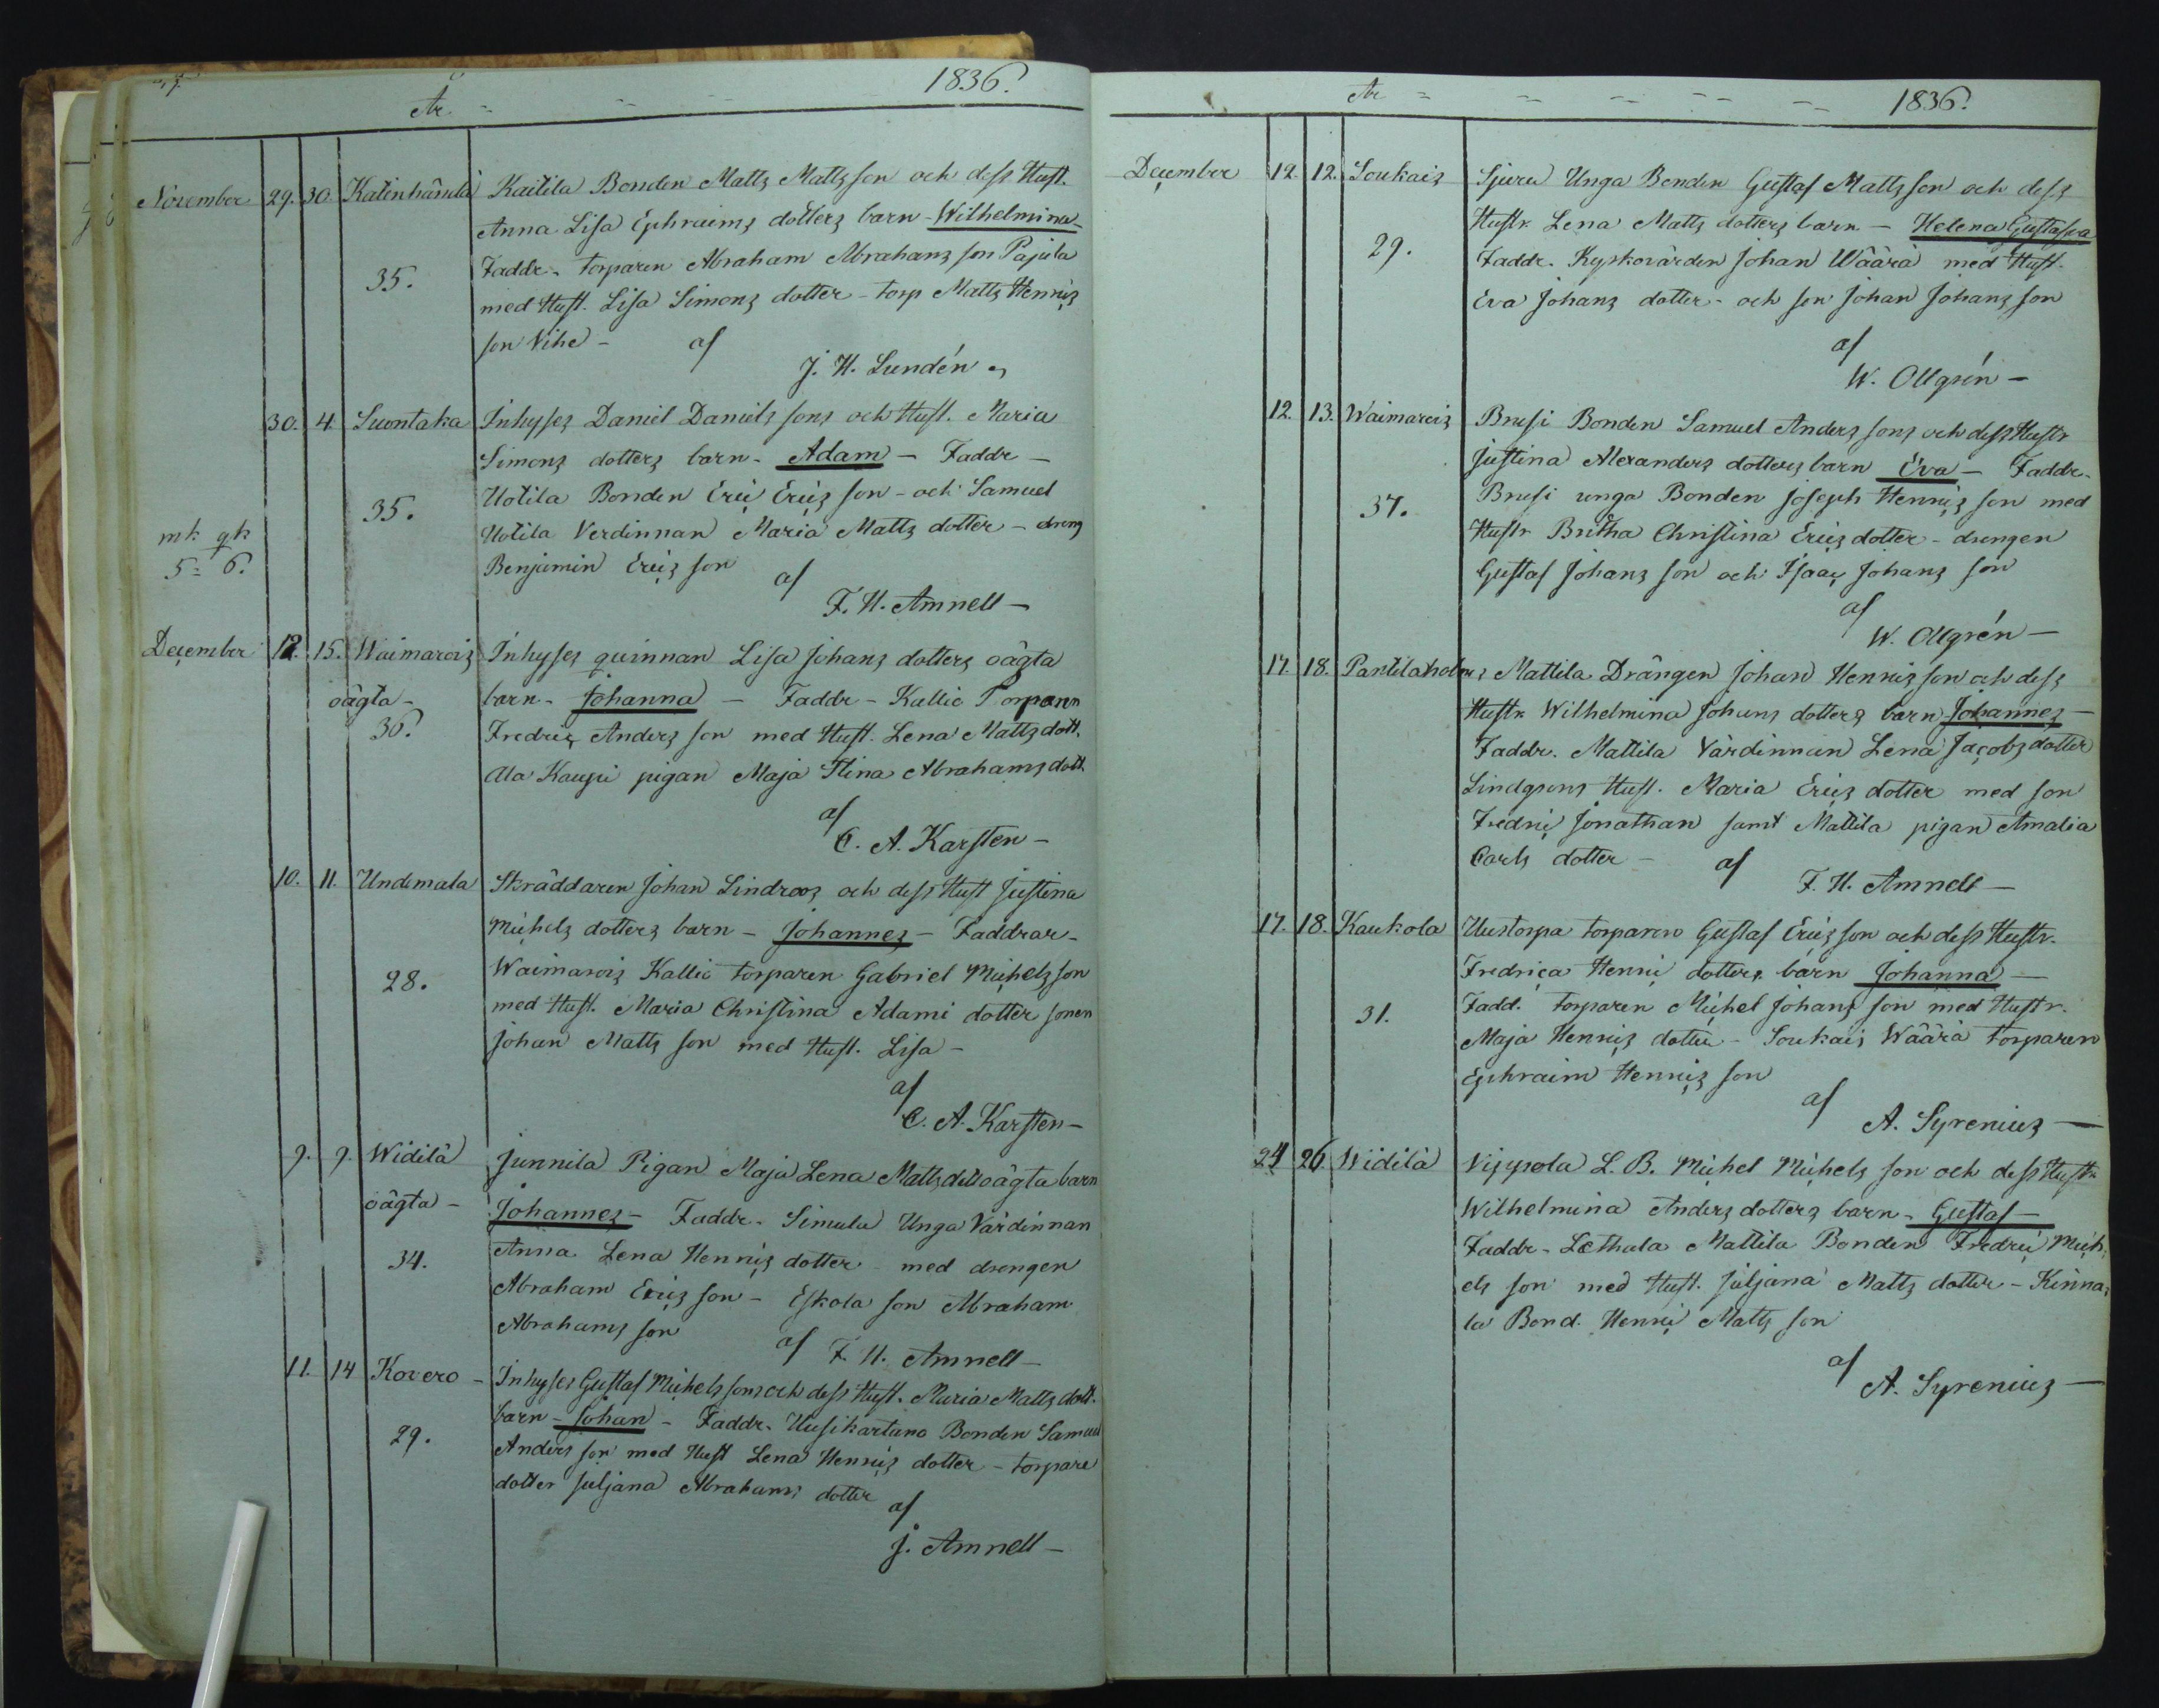 År 1836.
November 29. 30. Katinhändä Kaitila Bonden Matts Mattsson och dess Hust.
Anna Lisa Ephraims dotters barn - Wilhelmina -
Faddr. torparen Abraham Abrahams son Pajula
35.
med Hust. Lisa Simons dotter - torp Matts Henrics
son Vihe - af
J. H. Lundén
30. 4. Suontaka Inhyses Daniel Daniels sons och Hust. Maria
Simons dotters barn - Adam - Faddr -
35.
Uotila Bonden Eric Erics son - och Samuel
mk qk
Uotila Verdinnan Maria Matts dotter - dreng
5 = 6.
Benjamin Erics son af
F. H. Amnell -
December 12. 15. Waimarois Inhyses quinnan Lisa Johans dotters oägta
oägta -
barn - Johanna - Faddr - Kallio Torparen
36.
Fredric Anders son med Hust. Lena Matts dott.
Ala Kaupi pigan Maja Stina Abrahams dott.
af
C. A. Karsten -
10. 11. Undemala Skräddaren Johan Lindroos och dess Hust Justina
Michels dotters barn - Johannes - Faddrar -
28.
Waimarois Kallio torparen Gabriel Michels son
med Hust. Maria Christina Adami dotter sonen
Johan Matts son med Hust. Lisa -
af
C. A. Karsten -
9. 9. Widilä Junnila Pigan Maja Lena Matts dott oägta barn
oägta -
Johannes - Faddr - Simula Unga Värdinnan
34.
Anna Lena Henrics dotter - med drengen
Abraham Erics son - Eskola son Abraham
Abrahams son af F. H. Amnell -
11. 14 Kovero - Inhyses Gustaf Michels sons och dess Hust. Maria Matts dott.
barn - Johan - Faddr. Uusikartano Bonden Samuel
29.
Anders son med Hust Lena Henrics dotter - torpare
dotter Juljana Abrahams dotter af
J. Amnell -
År 1836.
December 12. 12. Soukais Sjuru Unga Bonden Gustaf Matts son och dess
Hustr. Lena Matts dotters barn - Helena Gustafva
29.
Faddr. Kyrkovärden Johan Wäärä med Hust.
Eva Johans dotter - och son Johan Johans son
af
W. Ollgrén -
12. 13. Waimarois Brusi Bonden Samuel Anders sons och dess Hustr
Justina Alexanders dotters barn Eva - Faddr.
37.
Brusi unga Bonden Joseph Henrics son med
Hustr Britha Christina Erics dotter - drengen
Gustaf Johans son och Isaac Johans son
af
W. Ollgrén -
17. 18. Pantilaholms Mattila Drängen Johan Henrics son och dess
Hustr. Wilhelmina Johans dotters barn Johannes -
Faddr. Mattila Värdinnan Lena Jacobs dotter
Lindgrens Hust. Maria Erics dotter med son
Fredric Jonathan samt Mattila pigan Amalia
Carls dotter - af F. H. Amnell -
17. 18. Kaukola Uustorpa torparen Gustaf Erics son och dess Hustr.
Fredrica Henric dotters barn Johanna -
31.
Fadd. torparen Michel Johans son med Hustr.
Maja Henrics dotter - Soukais Wäärä torparen
Ephraim Henrics son
af
A. Syrenius -
24 26 Widilä Vippola L. B. Michel Michels son och dess Hustr.
Wilhelmina Anders dotters barn - Gustaf -
Faddr - Lethala Mattila Bonden Fredric Mich,
els son med Hust. Juljana Matts dotter - Kinna,
la Bond. Henric Matts son
af
A. Syrenius -